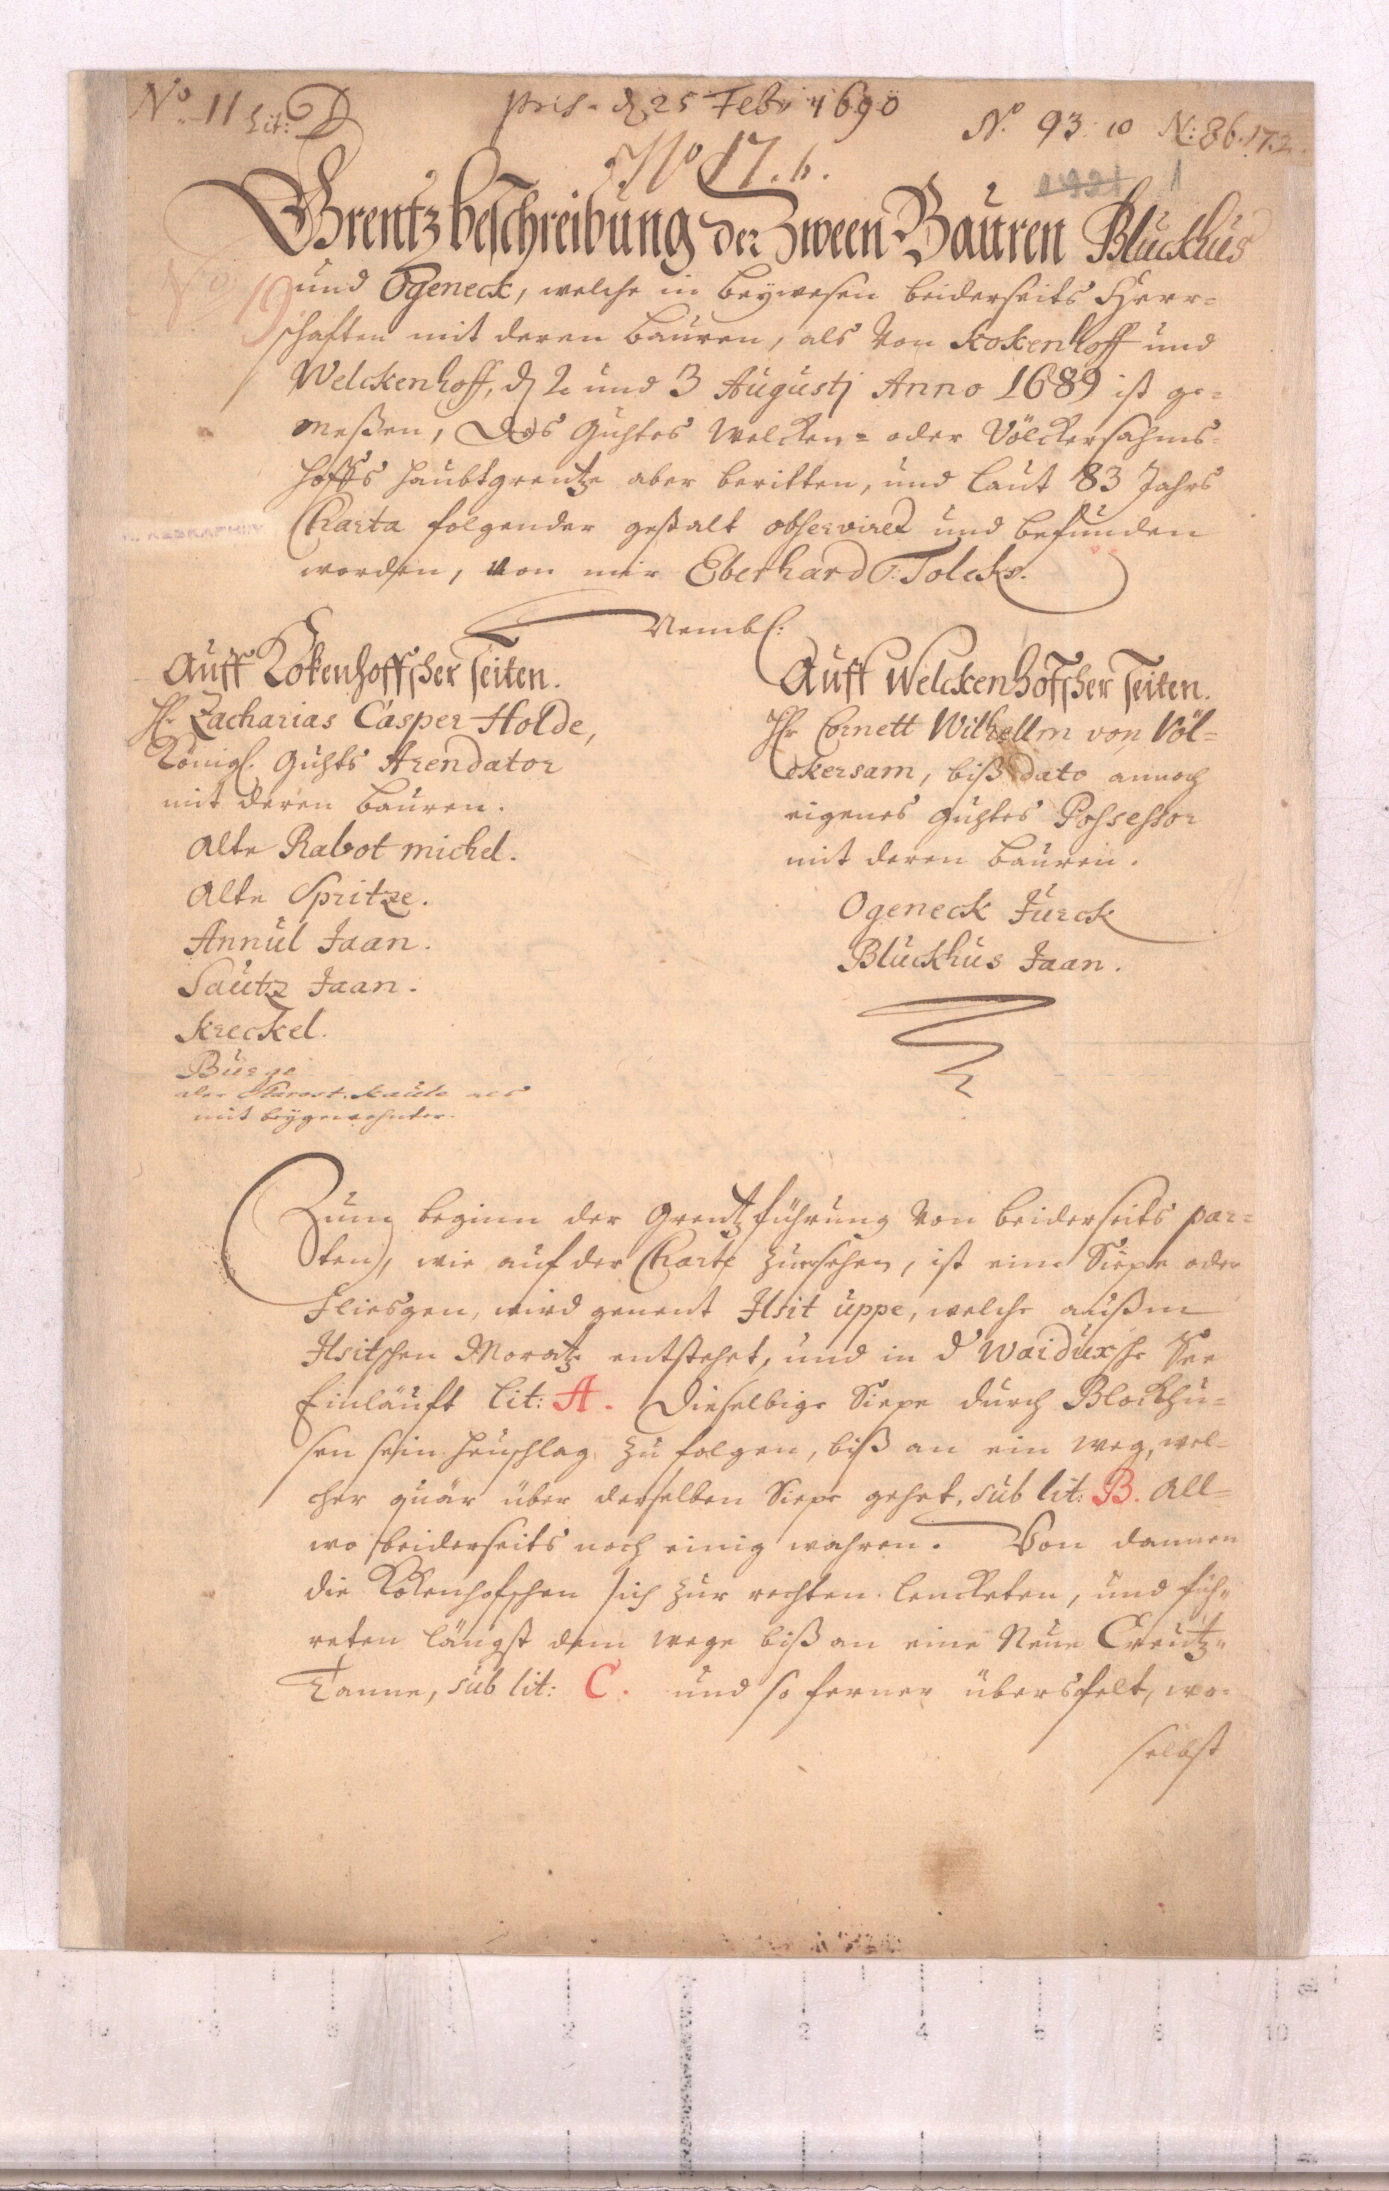 No. 11 Lit: D
pris. d 25 Febr 1690
No. 93. 10 N: 86.17.2.
No 17. b.
1
Grentzbeschreibung der Zween Bauren Bluckhus
No 19
und Ogeneck, welche in beywesen beiderseits Herr-
schaften mit deren bauren, als Von Kokenhoff und
Welckenhoff, d 2 und 3 Augustj Anno 1689 ist ge-
meßen, des Guhtes Welcken- oder Völckersahms-
hoffs haubtgrentze aber beritten, und laut 83 Jahrs
Charta folgender gestalt observiret und befunden
worden, von mir Eberhard Tolcks.
Nembl:
Auff Kokenhoffscher seiten.
Hr Zacharias Casper Holde,
Königl. Guhts Arendator
mit deren bauren.
Alte Rabot michel.
Alte Spritze.
Annul Jaan.
Sautz Jaan.
Kreckel.
Burge
der Starost Kaule als
mit beygewohnter.
Auff Welckenhofscher seiten.
Hr Cornett Wilhellm von Völ-
ckersam, biß dato annoch
eigenes Guhtes Possessor
mit deren bauren.
Ogeneck Jurck
Bluckhus Jaan.
Zum beginn der Grentzführung Von beiderseits par-
ten, wie auf der Charte zuersehen, ist eine Siepe oder
Fliesgen, wird genent Ilsit uppe, welche außm
Ilsitschen Moratz entstehet, und in d Waiduxsche See
Einläuft Lit: A. Dieselbige Siepe durch Blockhu-
sen sein heuschlag zu folgen, biß an ein weg, wel-
cher quär über derselben Siepe gehet, sub lit: B. All-
wo beiderseits noch einig wahren. Von dannen
die Kokenhofschen sich zur rechten lenckten, und füh-
reten längst dem wege biß an eine Neue Creutz-
Tanne, sub lit: C. und so ferner übersfelt, wo-
selbst